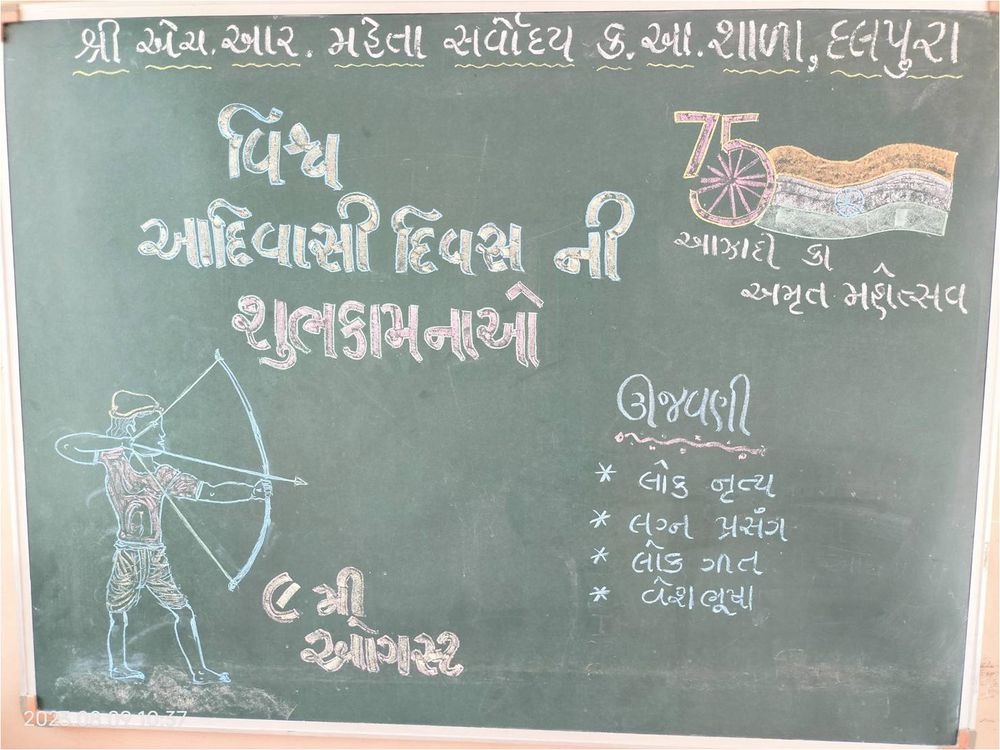 શ્રી એચ.આર. મહેતા સર્વોદય ક.આ.શાળા, દલપુરા
વિશ્વ
આદિવાસી દિવસ ની
શુભકામનાઓ
75
આઝાદી કા
અમૃત મહોત્સવ
ઊજવણી
* લોક નૃત્ય
* લગ્ન પ્રસંગ
* લોક ગીત
* વેશભૂષા
૯ મી
ઓગસ્ટ
2023.08.09 10:37